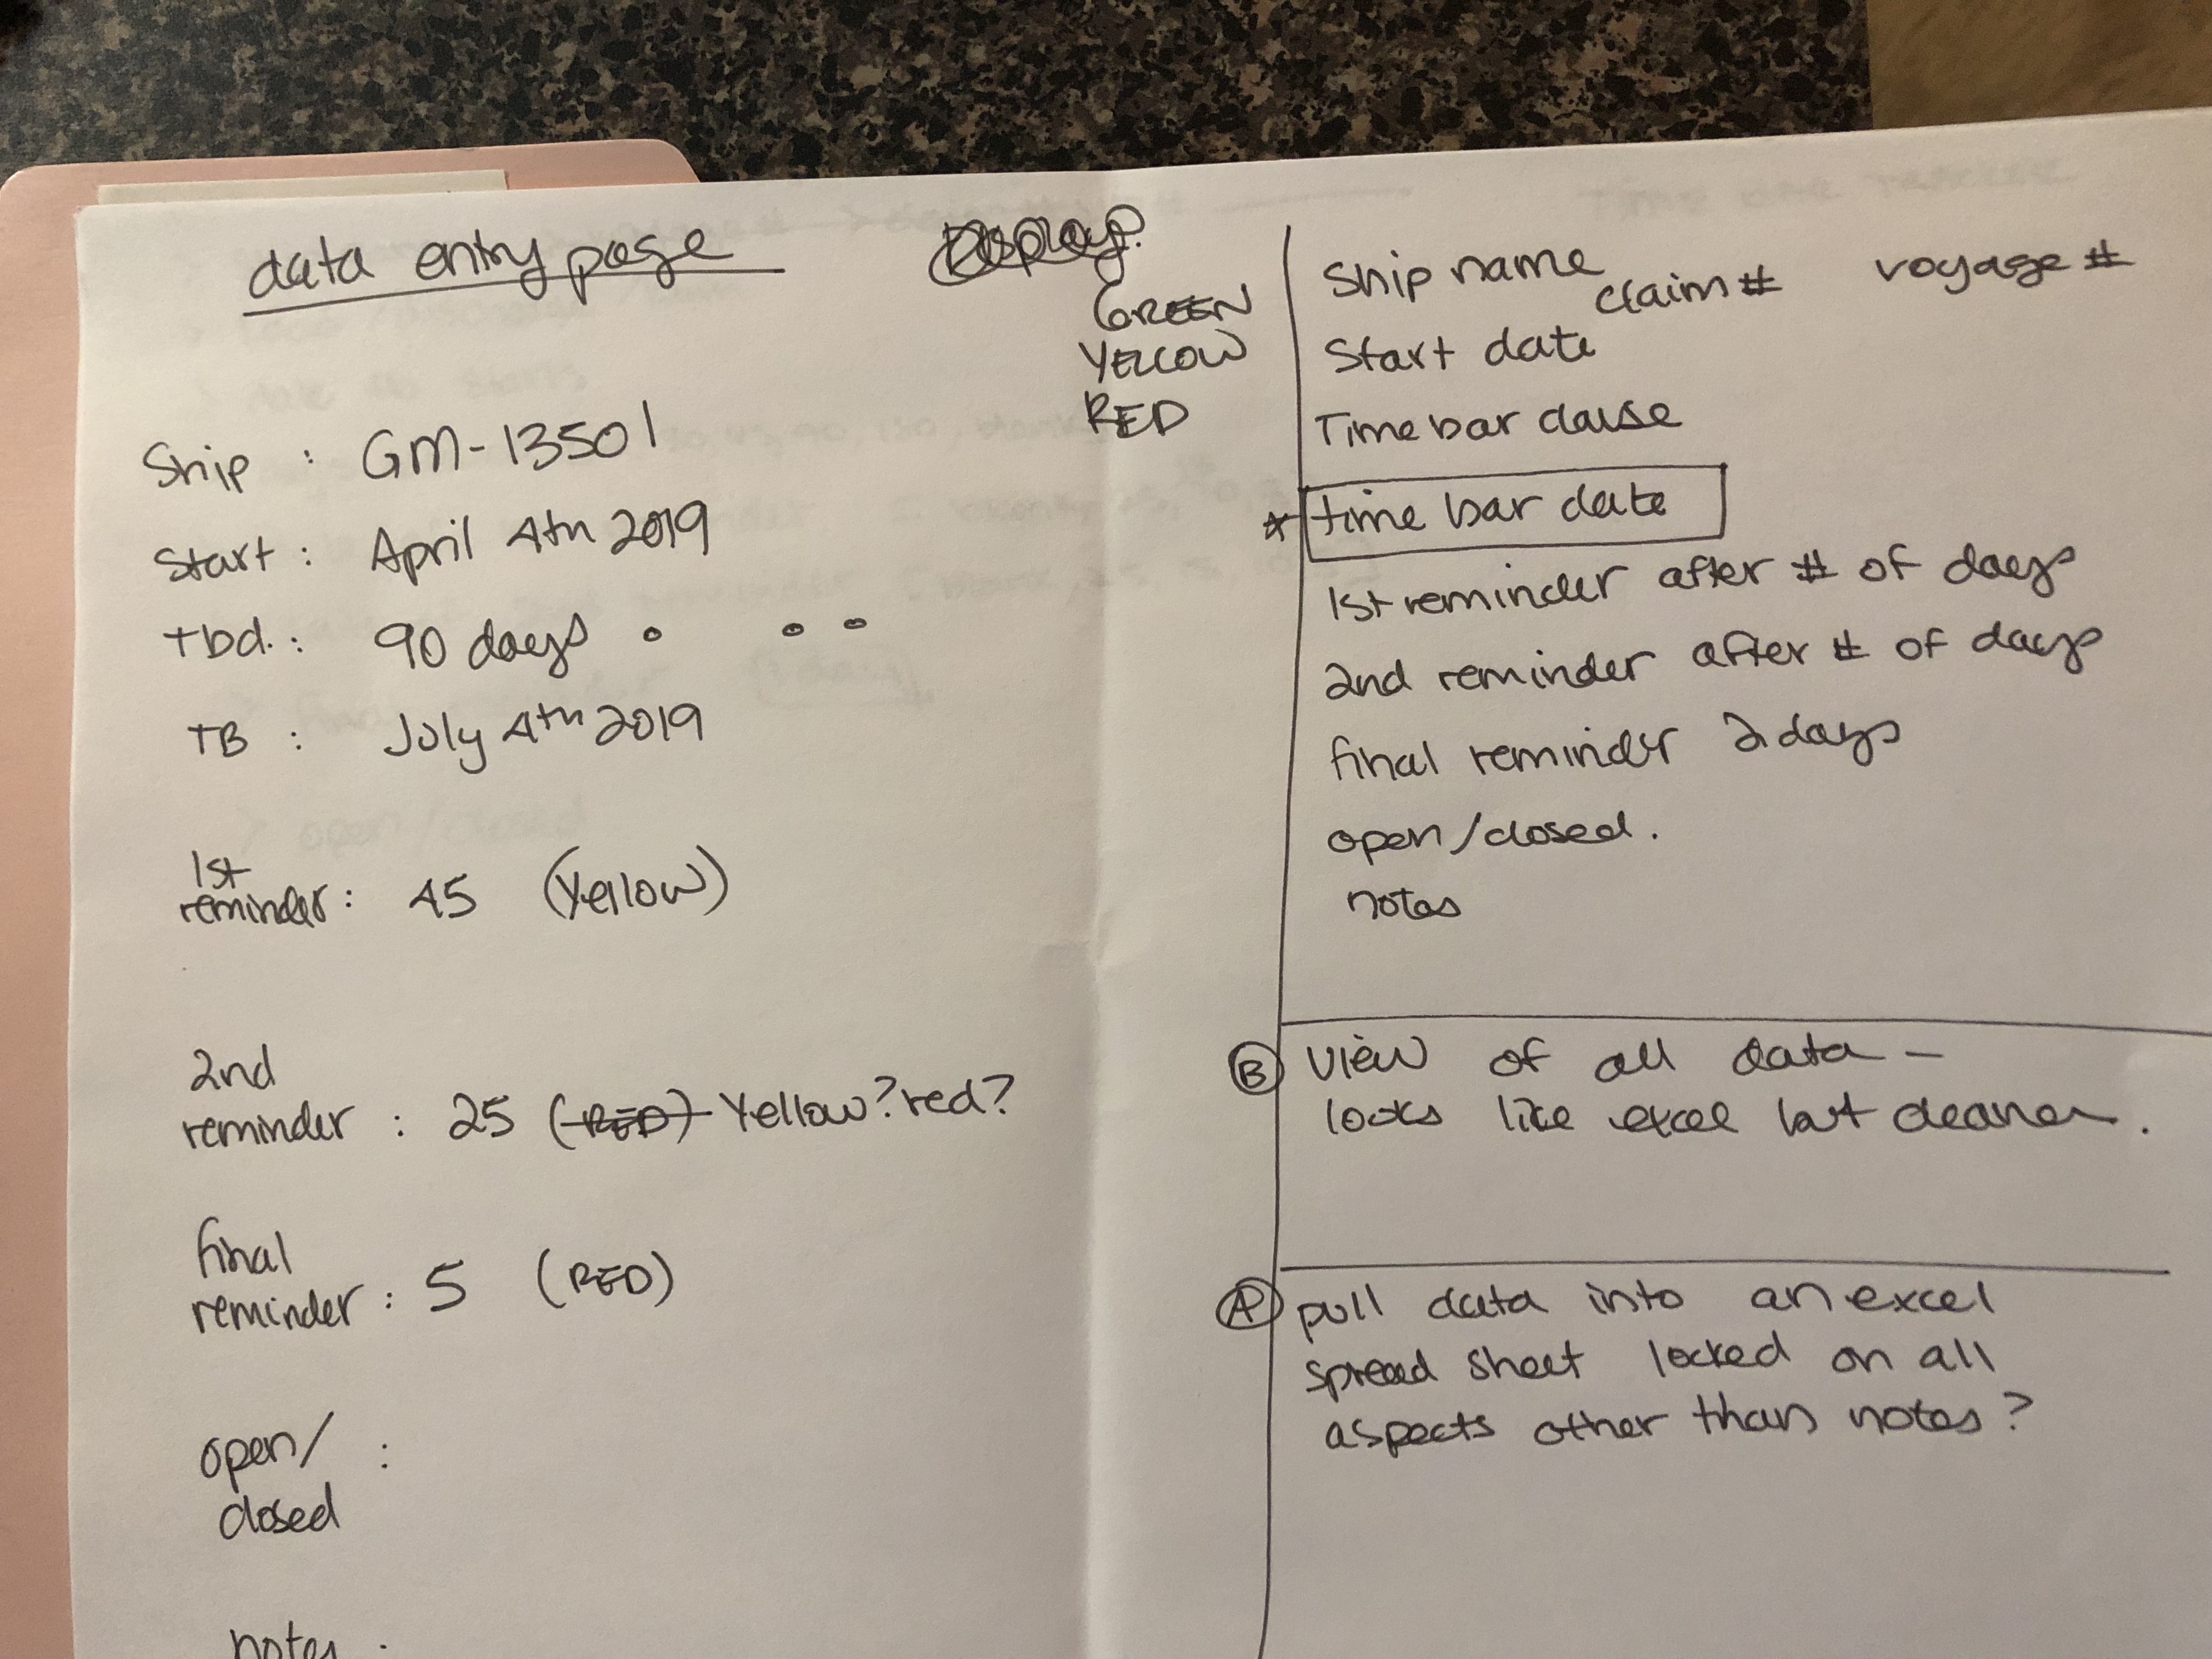 data entry page
GREEN
YELLOW
RED
Ship : GM-13501
Start : April 4th 2019
tbd. : 90 days
TB : July 4th 2019
1st
reminder : 45 (Yellow)
2nd
reminder : 25 (RED) Yellow? red?
final
reminder : 5 (RED)
open/ :
closed
notes :
Ship name claim # voyage #
Start date
Time bar clause
* time bar date
1st reminder after # of days
2nd reminder after # of days
final reminder 2 days
open/closed.
notes
B view of all data -
looks like excel but cleaner.
A pull data into an excel
spread sheet locked on all
aspects other than notes?